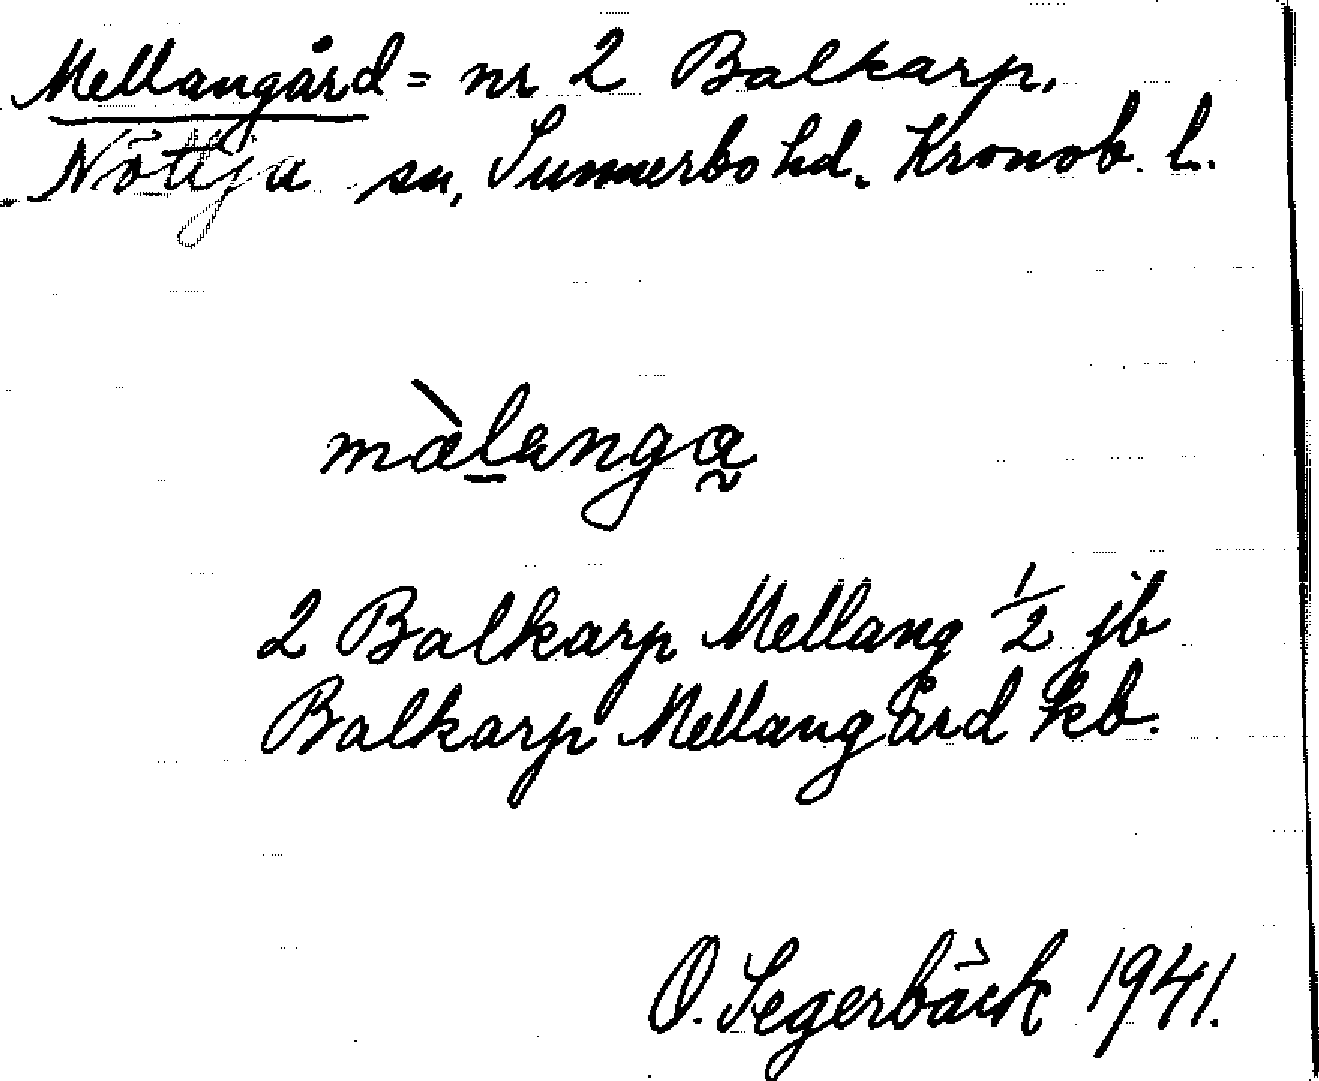 Mellangård = nr 2 Balkarp,
Nöttja sn, Sunnerbo hd. Kronob. l.
màlanga
2 Balkarp Mellang 1/2 jb
Balkarp Mellangård kb.
O. Segerbäck 1941.